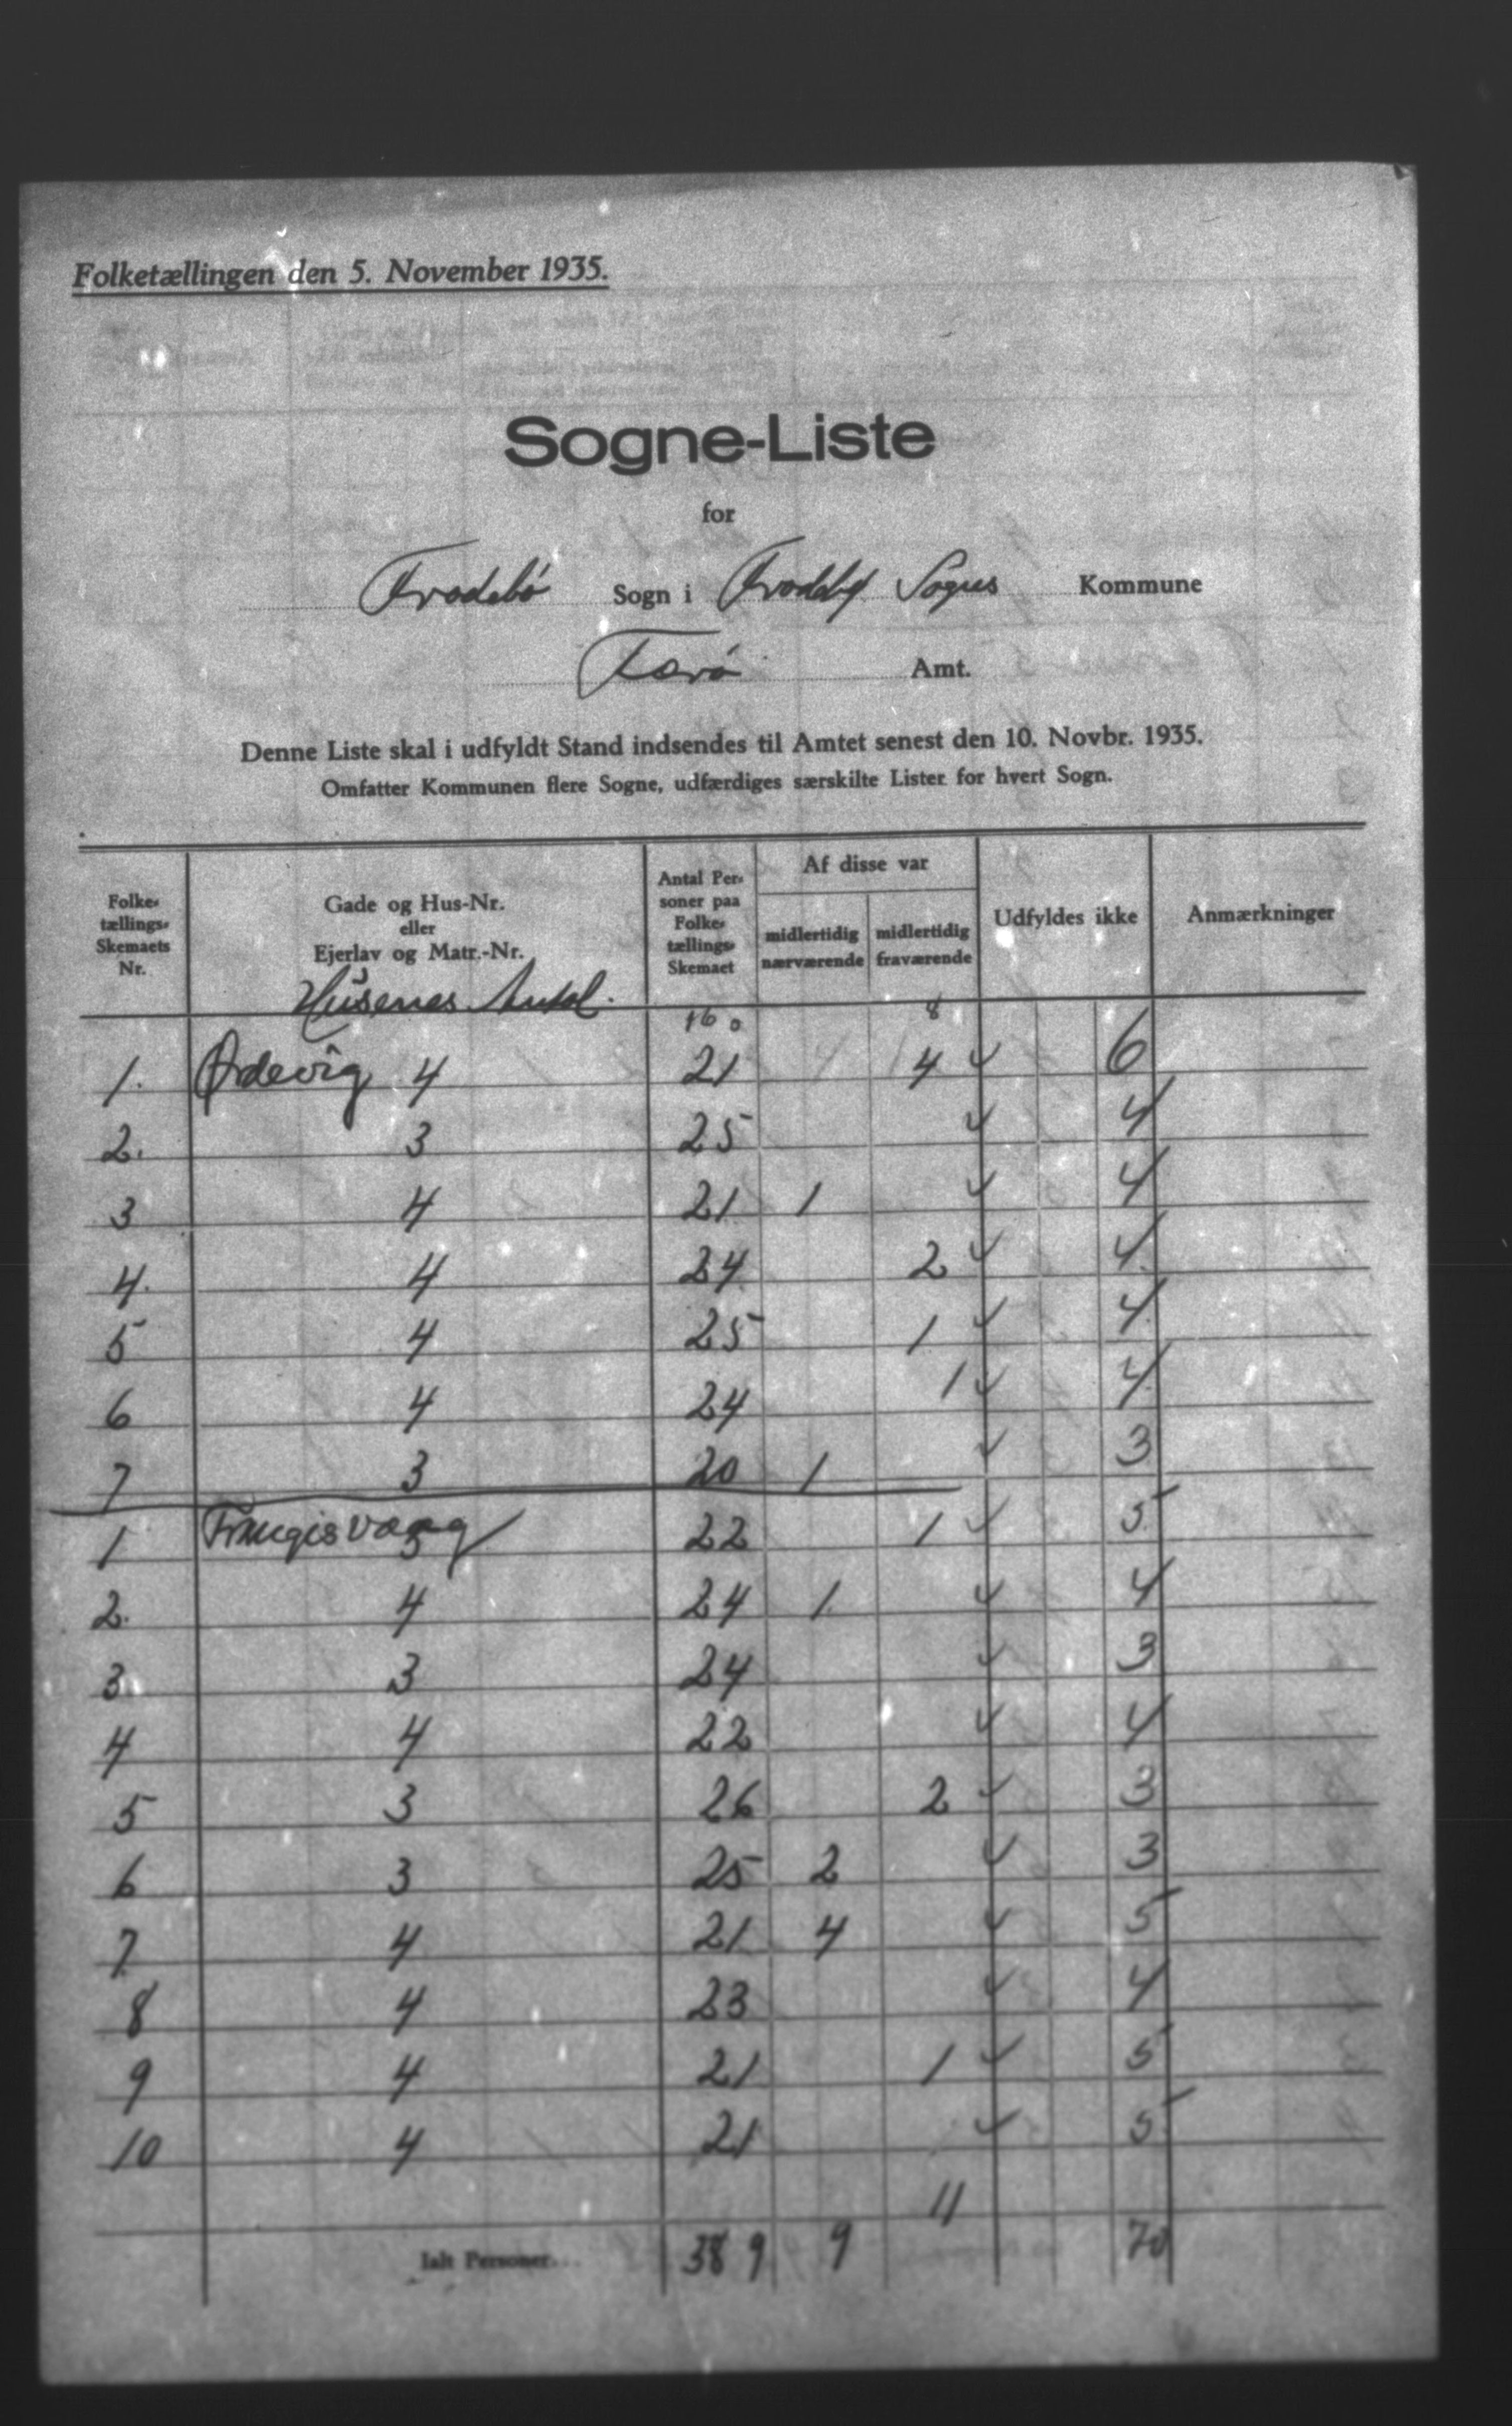 Folketællingen den 5. November 1935.
Sogne-Liste
for
Frodebø Sogn i Frodebø Sogns Kommune
Færø Amt.
Denne Liste skal i udfyldt Stand indsendes til Amtet senest den 10. Novbr. 1935.
Omfatter Kommunen flere Sogne, udfærdiges særskilte Lister for hvert Sogn.
Folke-
tællings-
Skemaets
Nr.
Gade og Hus-Nr.
eller
Ejerlav og Matr.-Nr.
Husenes Antal.
Antal Per-
soner paa
Folke-
tællings-
Skemaet
Af disse var
midlertidig
nærværende
midlertidig
fraværende
Udfyldes ikke
Anmærkninger
8
1. Ørdevig 4 21 4 6
2. 3 25 4
3 4 21 1 4
4. 4 24 2 4
5 4 25 1 4
6 4 24 1 4
7 3 20 1 3
1 Trangisvaag 5 22 1 5
2. 4 24 1 4
3 3 24 3
4 4 22 4
5 3 26 2 3
6 3 25 2 3
7 4 21 4 5
8 4 23 4
9 4 21 1 5
10 4 21 5
11
Ialt Personer... 389 9 70